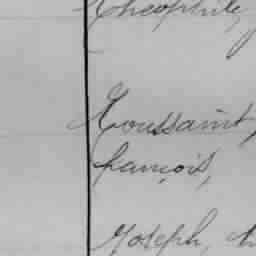 Théophile,
Toussaint,
françois,
Joseph,